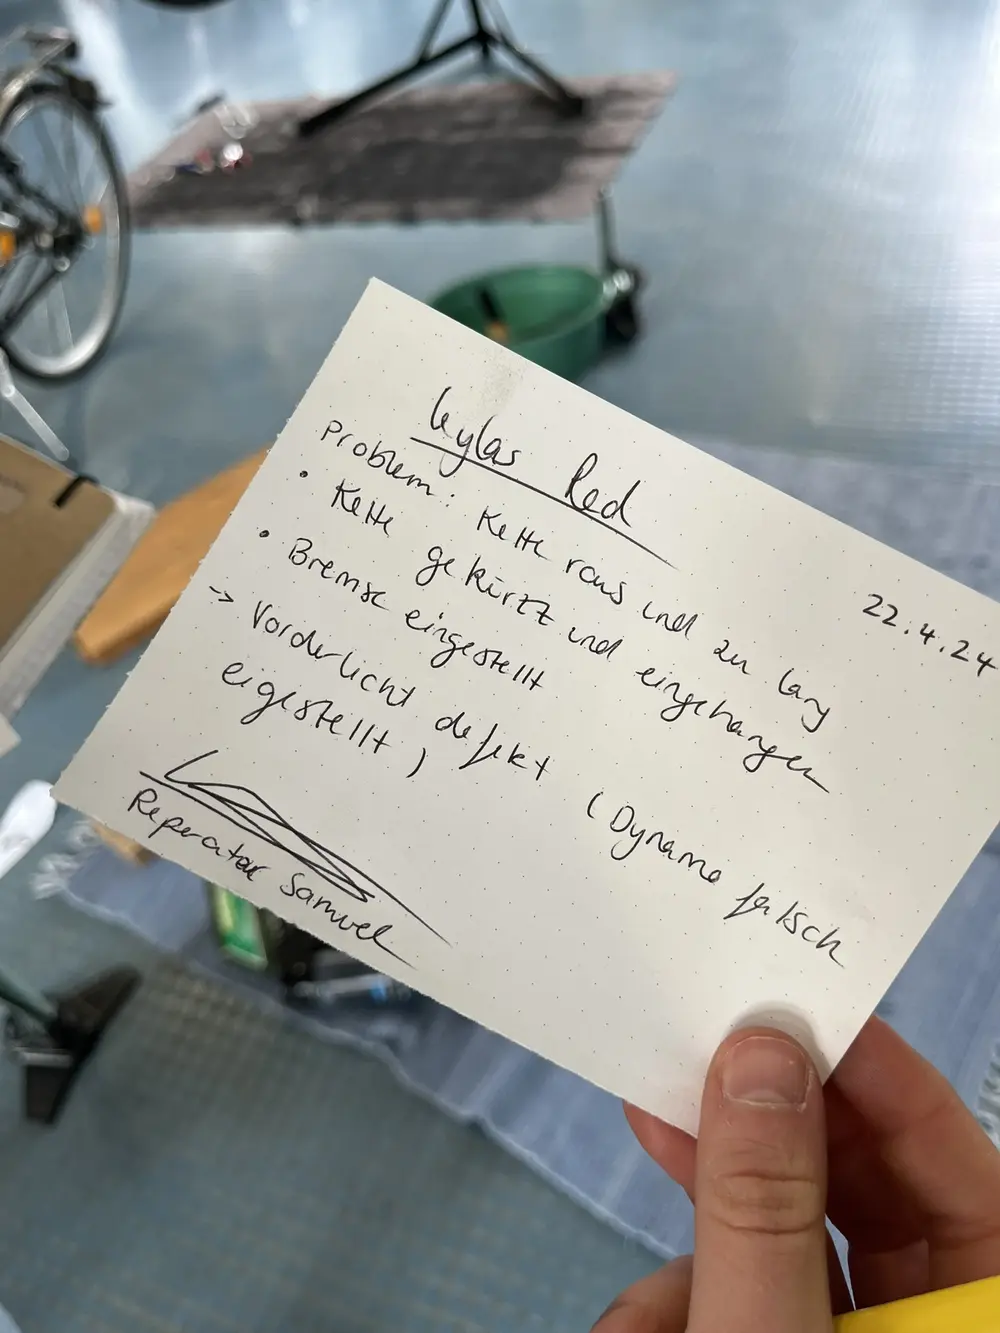 Kylas Rad
22.4.24
Problem: Kette raus und zu lang
• Kette gekürzt und eingehangen
• Bremse eingestellt
-> Vorderlicht defekt (Dynamo falsch
eigestellt)
Reperatur Samuel